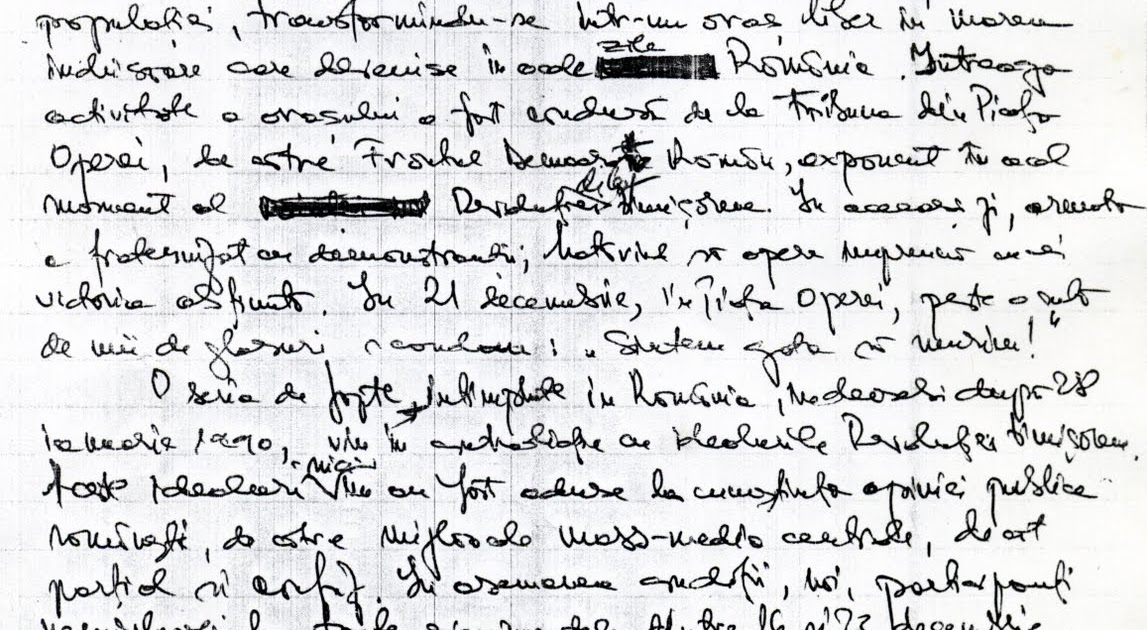 populației, transformîndu-se într-un oraș liber în marea
închisoare care devenise în acele zile România. Întreaga
activitate a orașului a fost condusă de la tribuna din Piața
Operei, de către Frontul Democratic Român, exponent în acel
moment al Revoluției din Timișoara. În aceeași zi, armata
a fraternizat cu demonstranții, hotărînd să apere împreună cu ei
victoria obținută. În 21 decembrie, în Piața Operei, peste o sută
de mii de glasuri scandau: „Sîntem gata să murim!"
O serie de fapte întîmplate în România, îndeosebi după 28
ianuarie 1990, vin în contradicție cu idealurile Revoluției timișorene.
Aceste idealuri nici nu au fost aduse la cunoștința opiniei publice
românești, de către mijloacele mass-media centrale, decît
parțial și confuz. În asemenea condiții, noi, participanți
decembrie